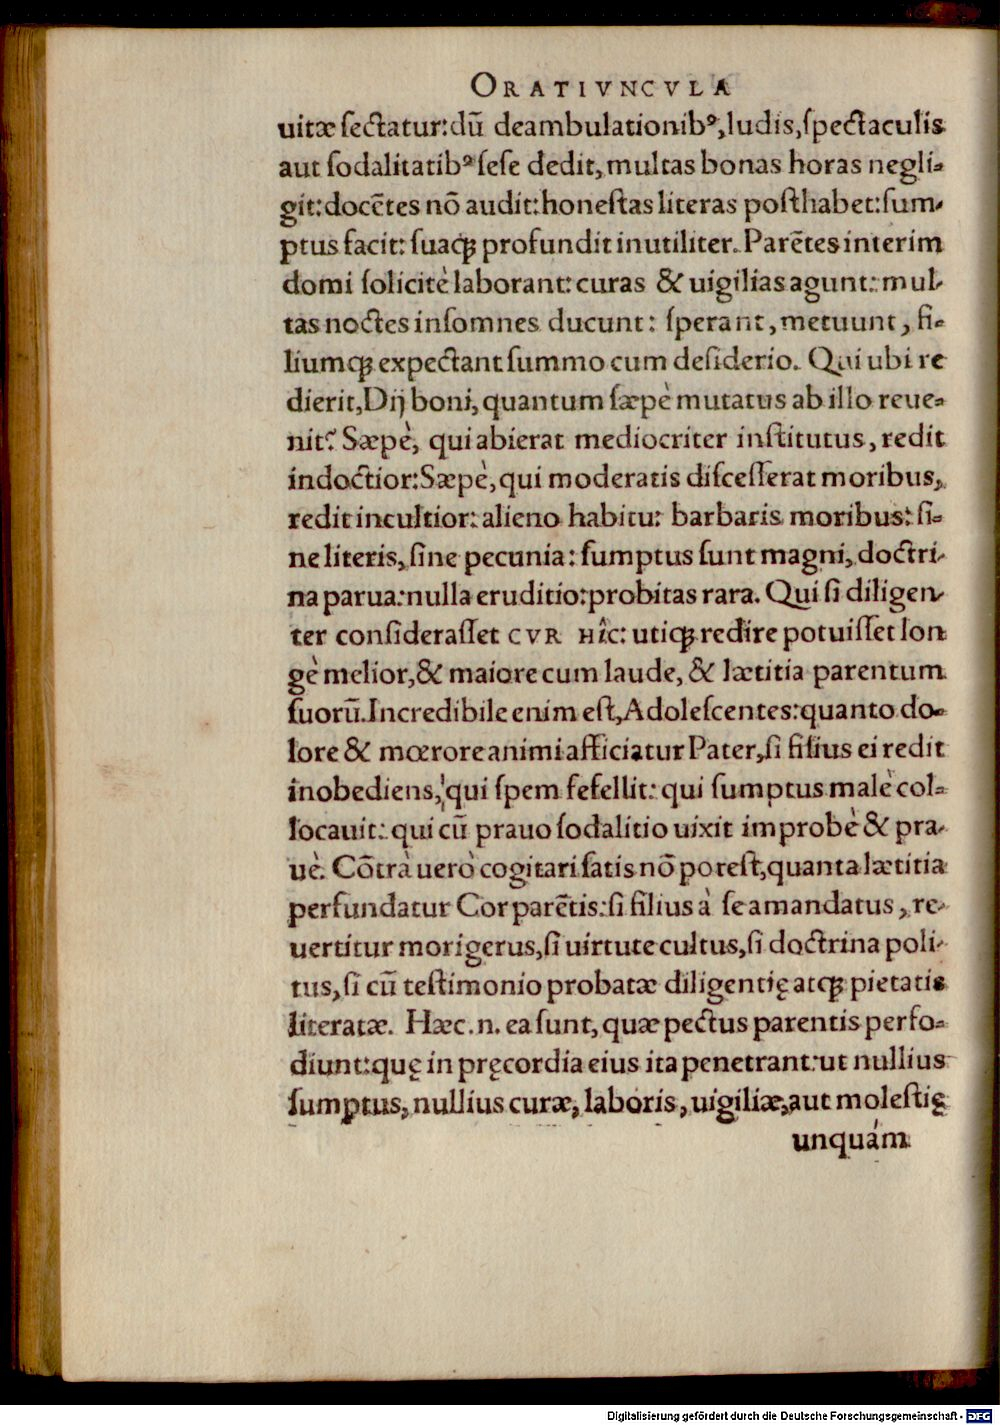 ORATIVNCVLA
uitæ ſectatur: dū deambulationibꝰ, ludis, ſpectaculis
aut ſodalitatibꝰ ſeſe dedit, multas bonas horas negli-
git: docētes nō audit: honeſtas literas poſthabet: ſum-
ptus facit: ſuaqꝫ profundit inutiliter. Parētes interim
domi ſolicitè laborant: curas & uigilias agunt: mul-
tas noctes inſomnes ducunt: ſperant, metuunt, fi-
liumqꝫ expectant ſummo cum deſiderio. Qui ubi re
dierit, Dij boni, quantum ſæpè mutatus ab illo reue-
nit? Sæpè, qui abierat mediocriter inſtitutus, redit
indoctior: Sæpè, qui moderatis diſceſſerat moribus,
redit incultior: alieno habitu: barbaris moribus: ſi-
ne literis, ſine pecunia: ſumptus ſunt magni, doctri-
na parua: nulla eruditio: probitas rara. Qui ſi diligen-
ter conſideraſſet CVR HîC: utiqꝫ redire potuiſſet lon
gè melior, & maiore cum laude, & lætitia parentum
ſuorū. Incredibile enim eſt, Adoleſcentes: quanto do-
lore & mœrore animi afficiatur Pater, ſi filius ei redit
inobediens, qui ſpem fefellit: qui ſumptus malè col-
locauit: qui cū prauo ſodalitio uixit improbè & pra-
uè. Cōtrà uerò cogitari ſatis nō poteſt, quanta lætitia
perfundatur Cor parētis: ſi filius à ſe amandatus, re-
uertitur morigerus, ſi uirtute cultus, ſi doctrina poli-
tus, ſi cū teſtimonio probatæ diligentię atqꝫ pietatis
literatæ. Hæc .n. ea ſunt, quæ pectus parentis perfo-
diunt: quę in pręcordia eius ita penetrant: ut nullius
ſumptus, nullius curæ, laboris, uigiliæ, aut moleſtię
unquàm
Digitalisierung gefördert durch die Deutsche Forschungsgemeinschaft - DFG